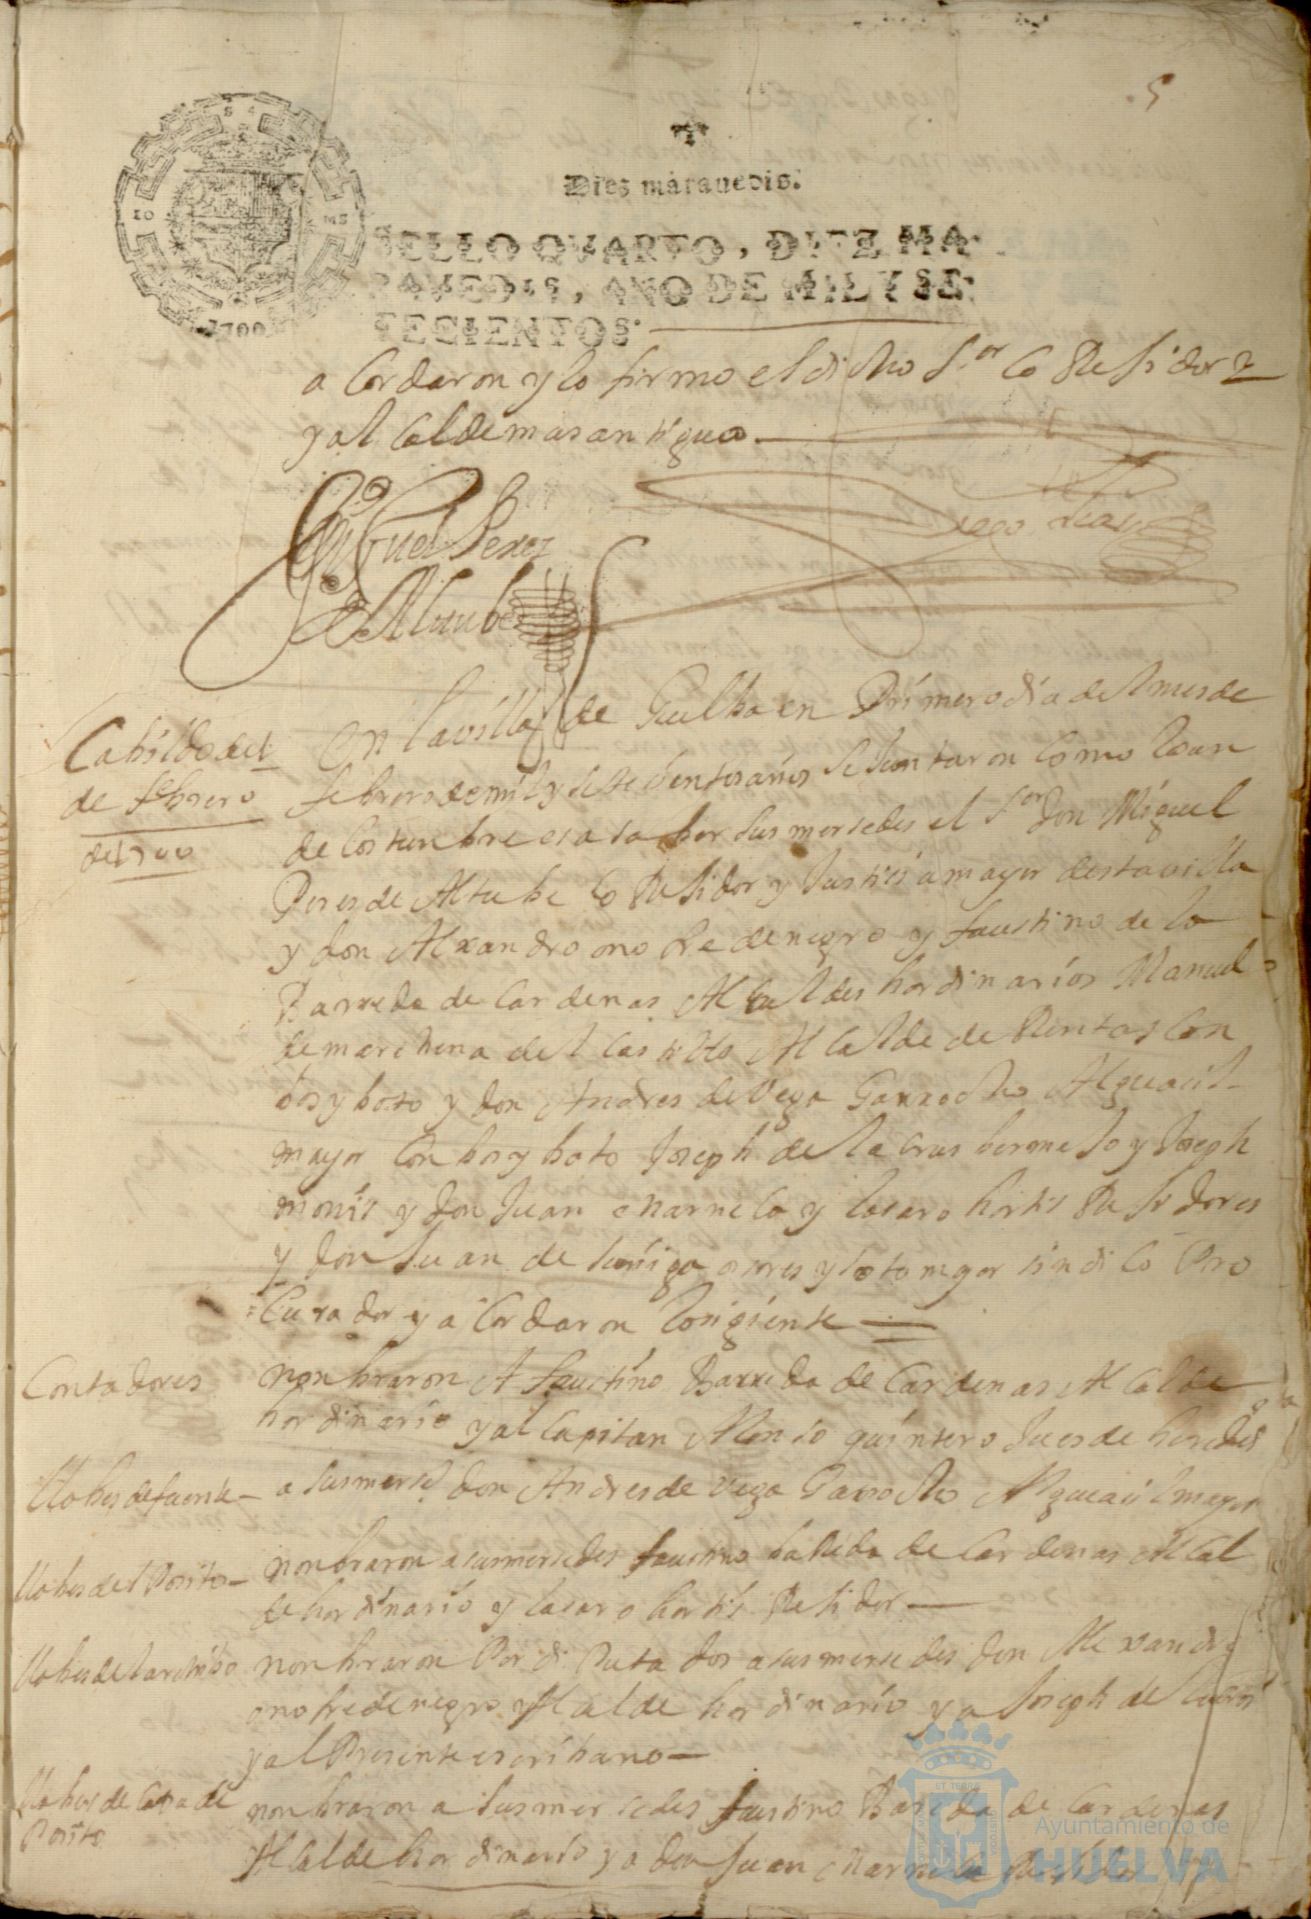 5
Dies marauedis.
SELLO QVARTO, DIEZ MA
RAVEDIS, AÑO DE MIL Y SE
TECIENTOS.
1700
a Cordaron y lo firmo el dicho S.or Co Rexidor
y al Calde mas antiguo
Miguel Perez
de Altube
Diego
Cabildo del
de febrero
de 1700
en la villa de Guelba en Primero dia del mes de
febrero de mil y sete sientos años se Juntaron como lo an
de Costumbre es a saber sus mersedes el S.or Don Miguel
Peres de Altube Co Rexidor y Justisia mayor desta villa
y don Alxandro onofre de negro y faustino de la
Barreda de Cardenas Alcaldes hordinarios Manuel
de marchena del Castillo Alcalde de Rentas Con
bos y boto y don Andres de Vega Garrocho Alguacil
mayor Con bos y boto Joseph de la Crus bermejo y Joseph
monis y don Juan charnela y lasaro hortis Rexidores
y don Juan de suniga ozores y sotomayor sindico Pro
Curador y a Cordaron lo sigiente
Contadores
nonbraron A faustino Barreda de Cardenas Alcalde
hordinario y al Capitan Alonso quintero Jues de
Llabes de fuente
a su mersed don Andres de Vega Garrocho Alguacil mayor
Llabes del Posito
nonbraron a sus mersedes faustino baReda de Cardenas Alcal
de hordinario y lasaro hortis Rexidor
Llabes del archibo
nonbraron Por di Putados a sus mersedes don Alexandro
onofre de negro Alcalde hordinario y a Joseph de
y al Presente escribano
Llabes de Casa de
Posito
nonbraron a sus mersedes faustino Bareda de Cardenas
Alcalde hordinario y a don Juan charnela Rexidor
Ayuntamiento de
HUELVA